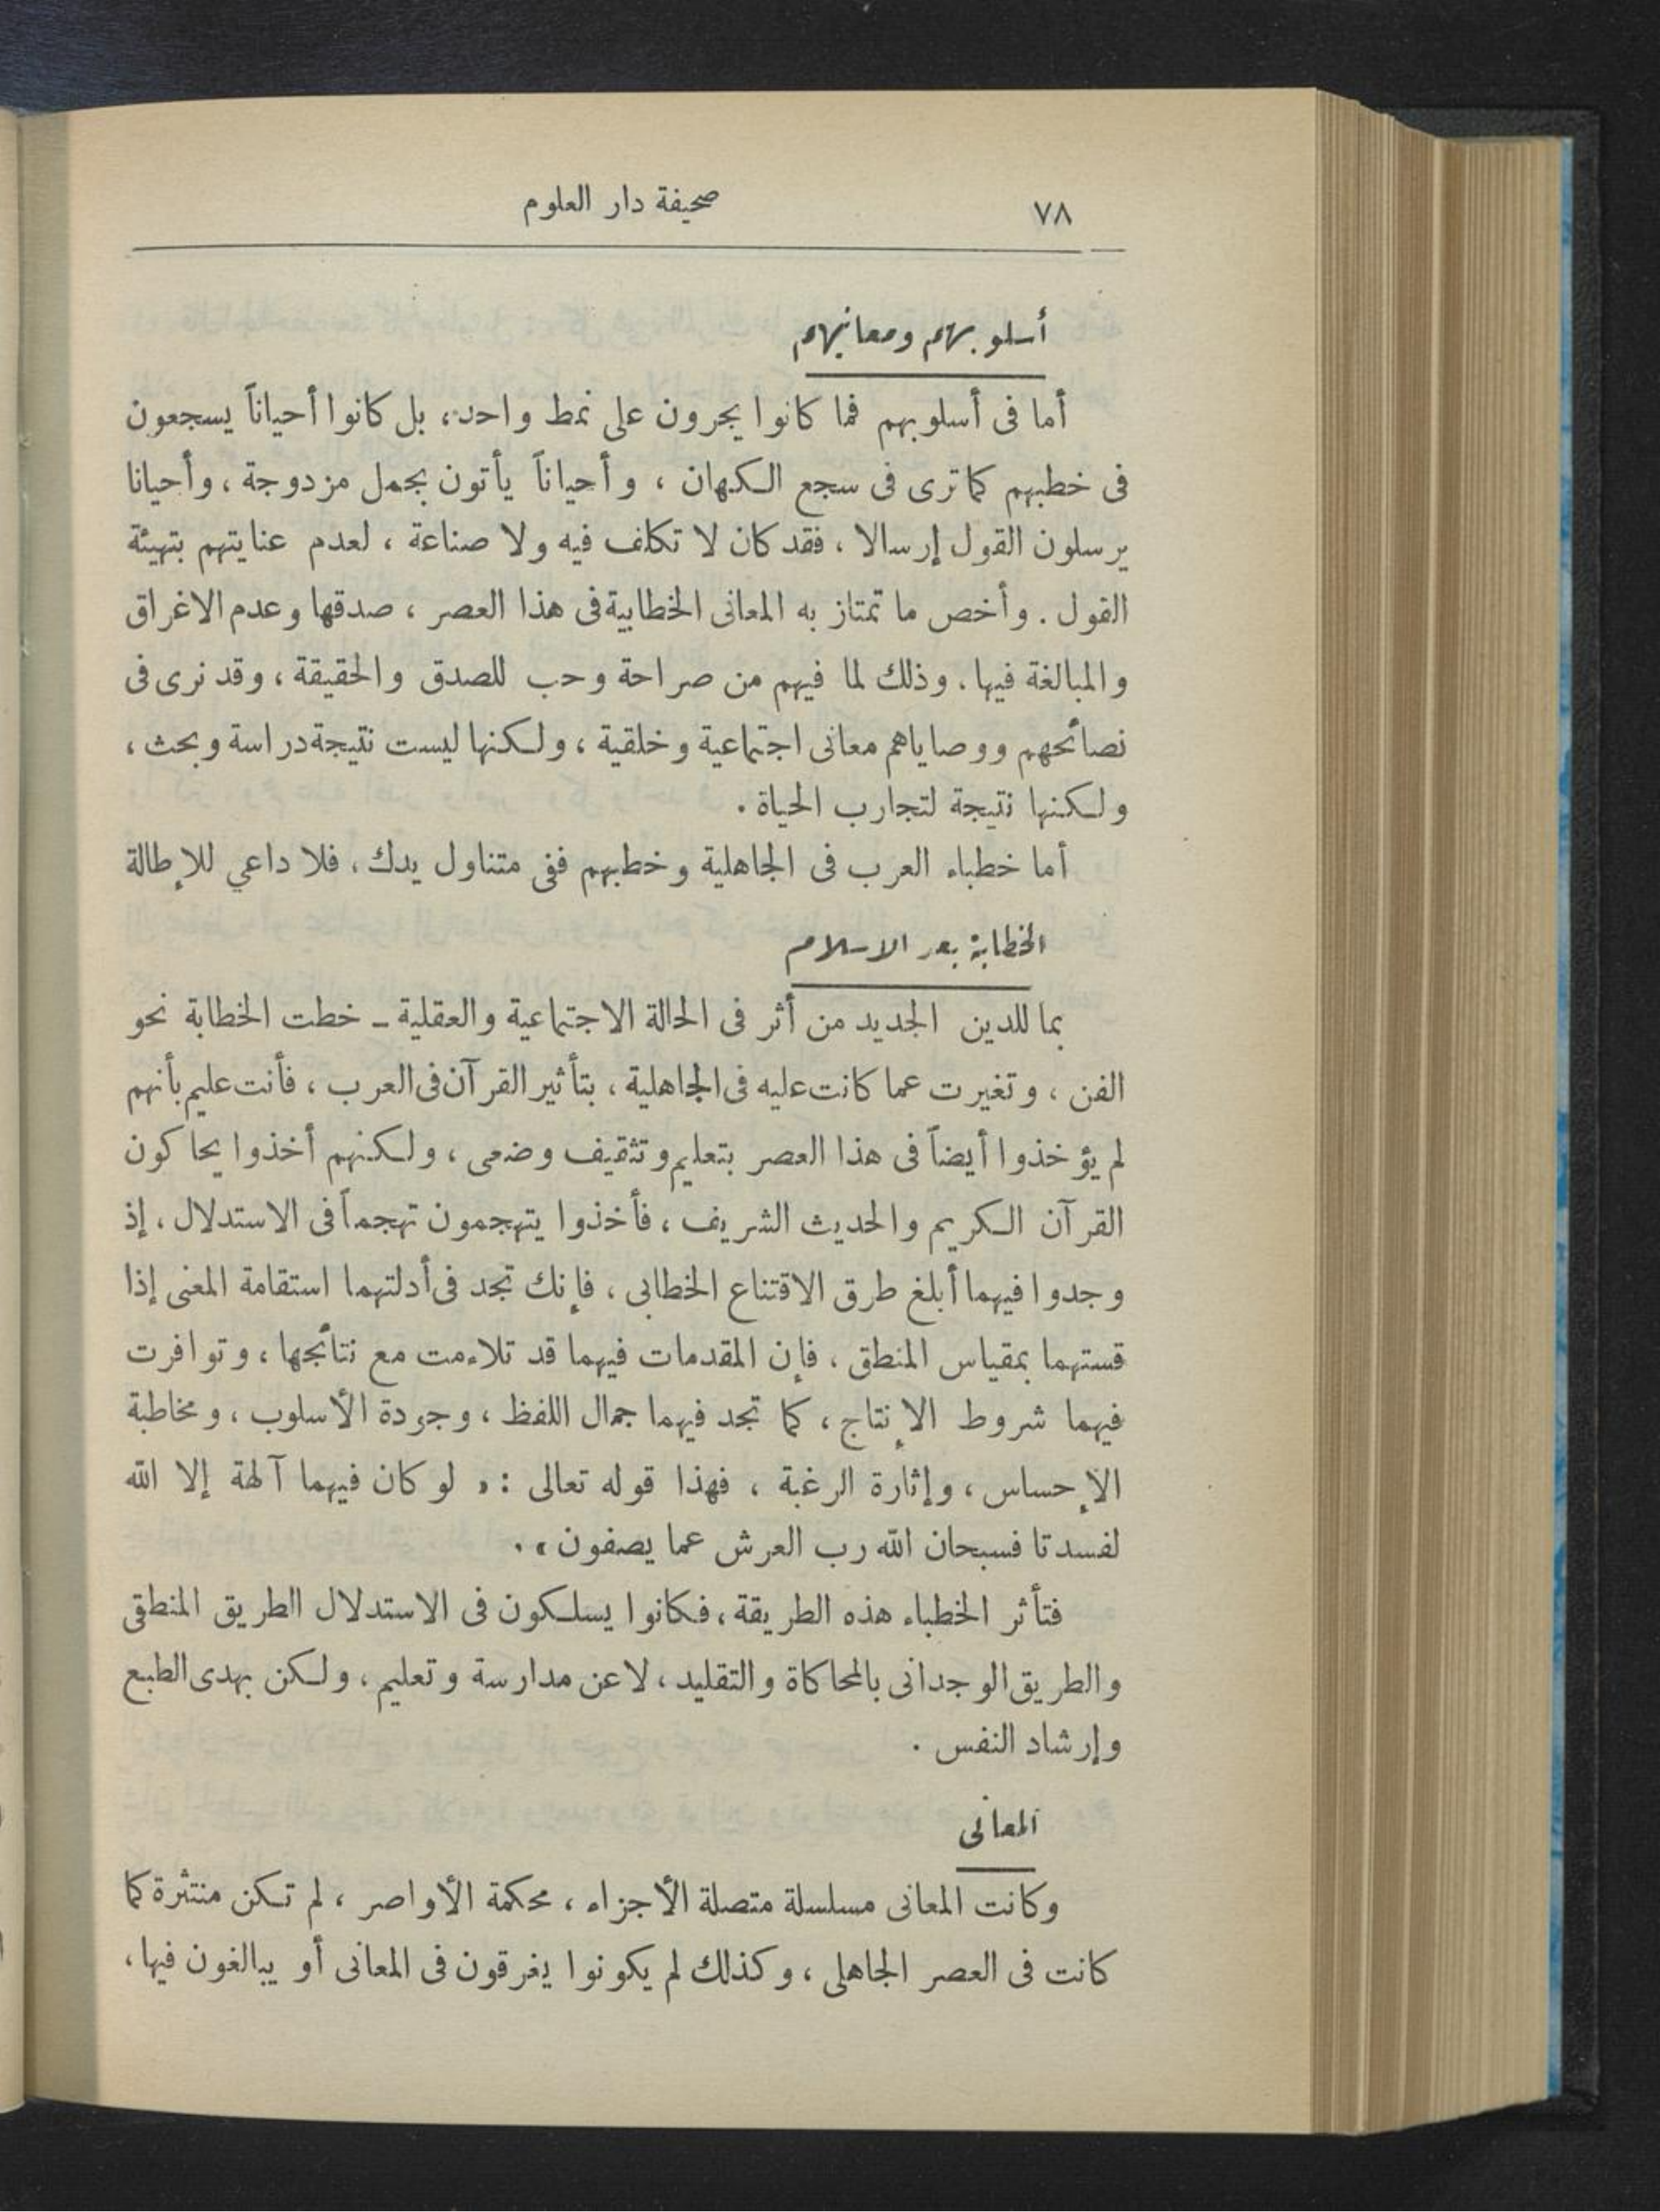 ٧٨ صحيفة دار العلوم
أسلوبهم ومعانيهم
أما فى أسلوبهم فما كانوا يجرون على نمط واحد، بل كانوا أحياناً يسجعون
فى خطبهم كما ترى فى سجع الكهان ، وأحياناً يأتون بجمل مزدوجة ، وأحيانا
يرسلون القول إرسالا ، فقد كان لا تكلف فيه ولا صناعة ، لعدم عنايتهم بتهيئة
القول . وأخص ما تمتاز به المعانى الخطابية فى هذا العصر ، صدقها وعدم الاغراق
والمبالغة فيها . وذلك لما فيهم من صراحة وحب للصدق والحقيقة ، وقد نرى فى
نصائحهم ووصاياهم معانى اجتماعية وخلقية ، ولكنها ليست نتيجة دراسة وبحث ،
ولكنها نتيجة لتجارب الحياة .
أما خطباء العرب فى الجاهلية وخطبهم ففى متناول يدك ، فلا داعي للإطالة
الخطابة بعد الاسلام
بما للدين الجديد من أثر فى الحالة الاجتماعية والعقلية ـ خطت الخطابة نحو
الفن ، وتغيرت عما كانت عليه فى الجاهلية ، بتأثير القرآن فى العرب ، فأنت عليم بأنهم
لم يؤخذوا أيضاً فى هذا العصر بتعليم وتثقيف وضعى ، ولكنهم أخذوا يحاكون
القرآن الكريم والحديث الشريف ، فأخذوا يتهجمون تهجماً فى الاستدلال ، إذ
وجدوا فيهما أبلغ طرق الاقتناع الخطابى ، فإنك تجد فى أدلتهما استقامة المعنى إذا
قستهما بمقياس المنطق ، فإن المقدمات فيهما قد تلاءمت مع نتائجها ، وتوافرت
فيهما شروط الإنتاج ، كما تجد فيهما جمال اللفظ ، وجودة الأسلوب ، ومخاطبة
الإحساس ، وإثارة الرغبة ، فهذا قوله تعالى : « لو كان فيهما آلهة إلا الله
لفسدتا فسبحان الله رب العرش عما يصفون » .
فتأثر الخطباء هذه الطريقة ، فكانوا يسلكون فى الاستدلال الطريق المنطقى
والطريق الوجدانى بالمحاكاة والتقليد ، لا عن مدارسة وتعليم ، ولكن بهدى الطبع
وإرشاد النفس .
المعانى
وكانت المعانى مسلسلة متصلة الأجزاء ، محكمة الأواصر ، لم تكن منتثرة كما
كانت فى العصر الجاهلى ، وكذلك لم يكونوا يغرقون فى المعانى أو يبالغون فيها ،